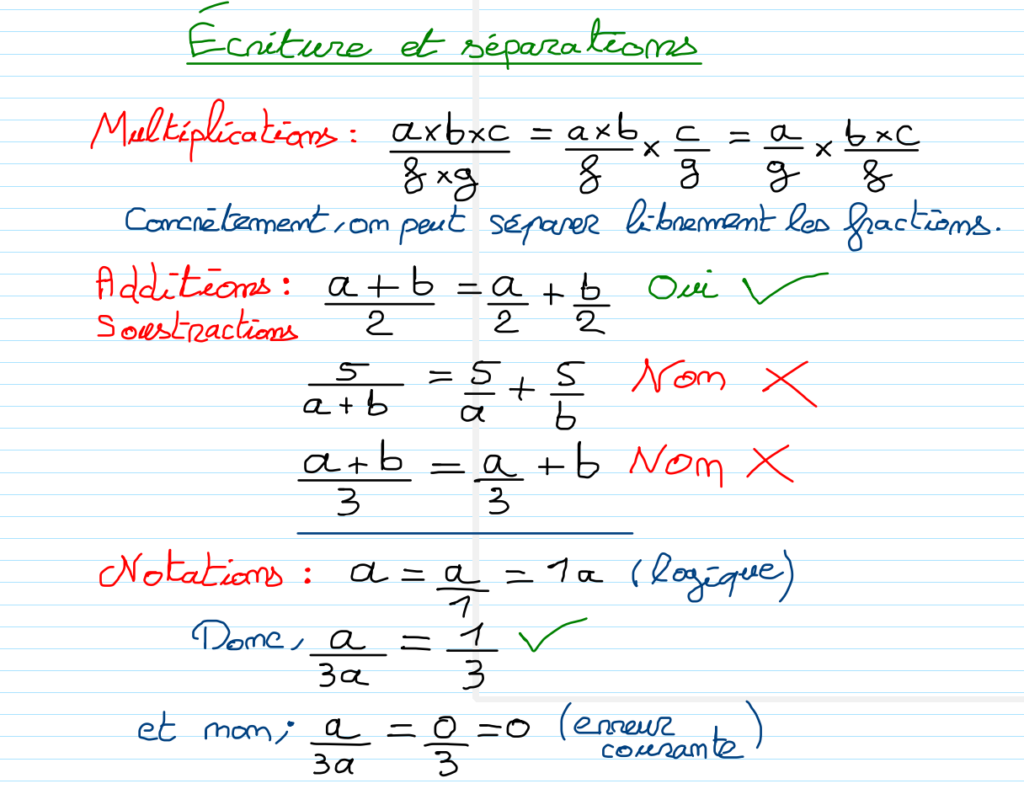 Écriture et séparations
Multiplications : (a×b×c)/(f×g) = (a×b)/f × c/g = a/g × (b×c)/f
Concrètement, on peut séparer librement les fractions.
Additions : (a+b)/2 = a/2 + b/2 Oui ✓
Soustractions
5/(a+b) = 5/a + 5/b Non ✗
(a+b)/3 = a/3 + b Non ✗
Notations : a = a/1 = 1a (logique)
Donc, a/3a = 1/3 ✓
et non ; a/3a = 0/3 = 0 (erreur courante)